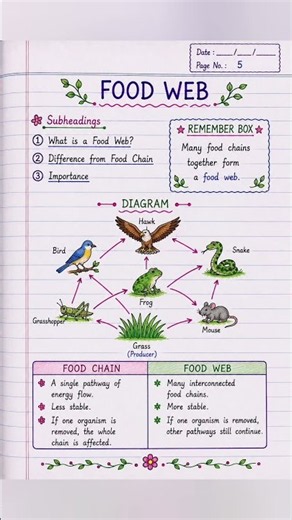 Date : ___/___/___
Page No. : 5
FOOD WEB
Subheadings
1 What is a Food Web?
2 Difference from Food Chain
3 Importance
REMEMBER BOX
Many food chains
together form
a food web.
DIAGRAM
Hawk
Bird
Snake
Frog
Grasshopper
Mouse
Grass
(Producer)
FOOD CHAIN
A single pathway of
energy flow.
Less stable.
If one organism is
removed, the whole
chain is affected.
FOOD WEB
Many interconnected
food chains.
More stable.
If one organism is removed,
other pathways still continue.